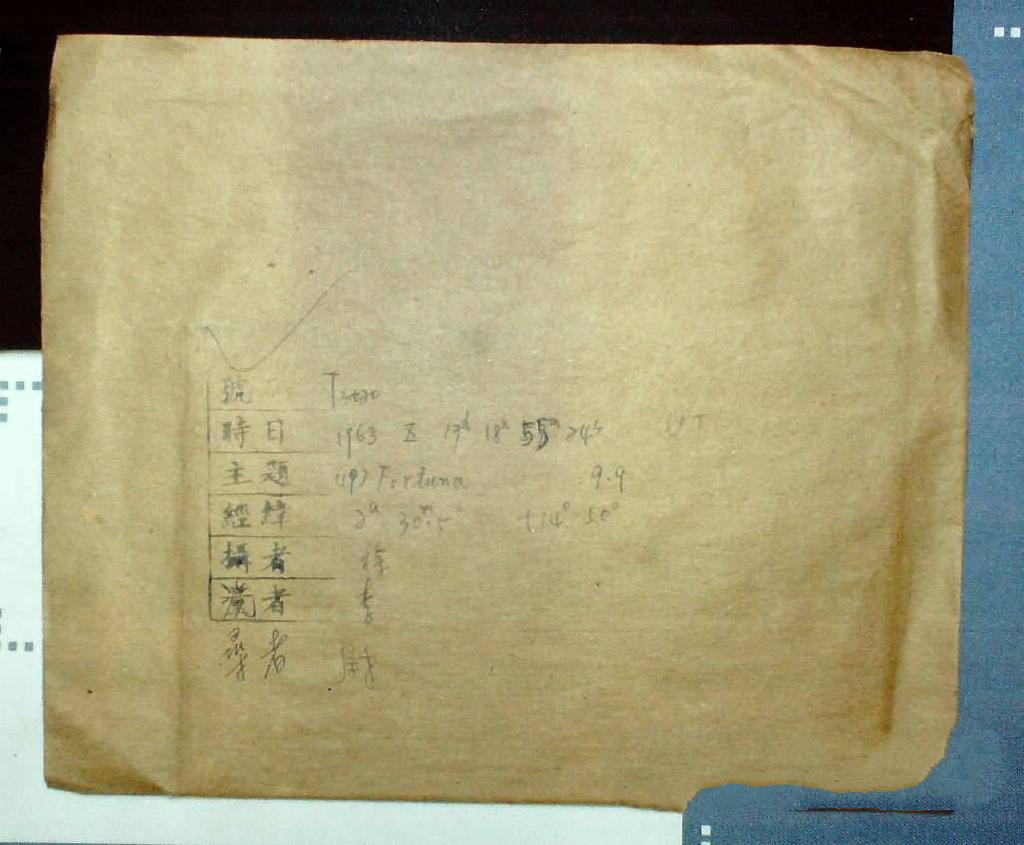 號
時日 1963 X 17ᵈ 18ʰ 55ᵐ 24ˢ UT
主題 (19) Fortuna 9.9
經緯 2ʰ 30ᵐ.5 +14° 50'
攝者 徐
洗者 李
尋者